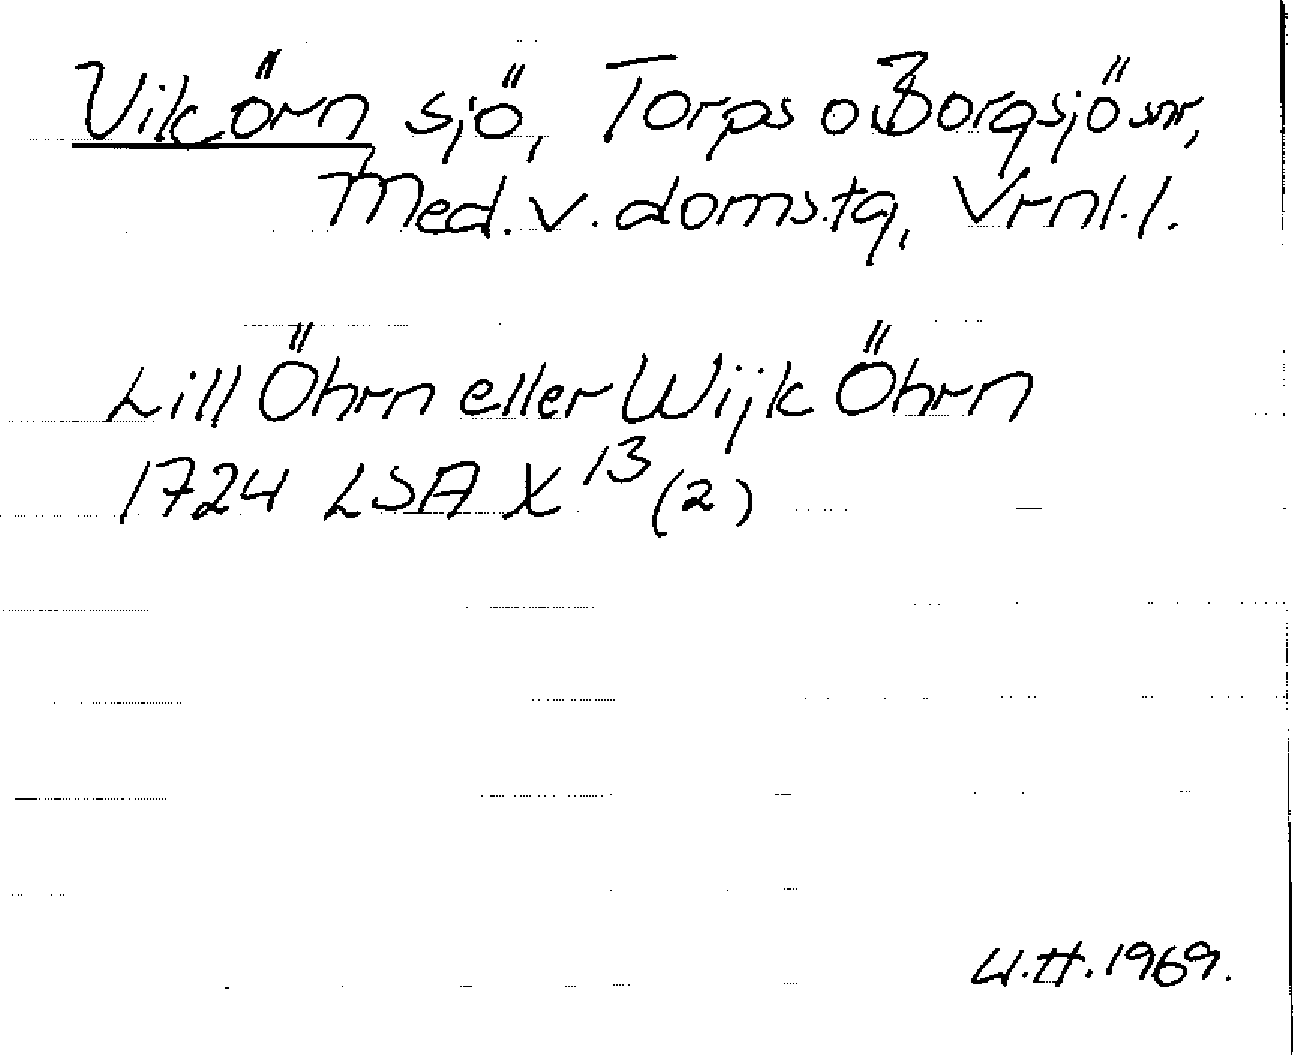 Vikörn sjö, Torps o Borgsjö snr,
Med. v. doms.tg, Vrnl.l.
Lill Öhrn eller Wijk Öhrn
1724 LSA X 13 (2)
U.H. 1969.